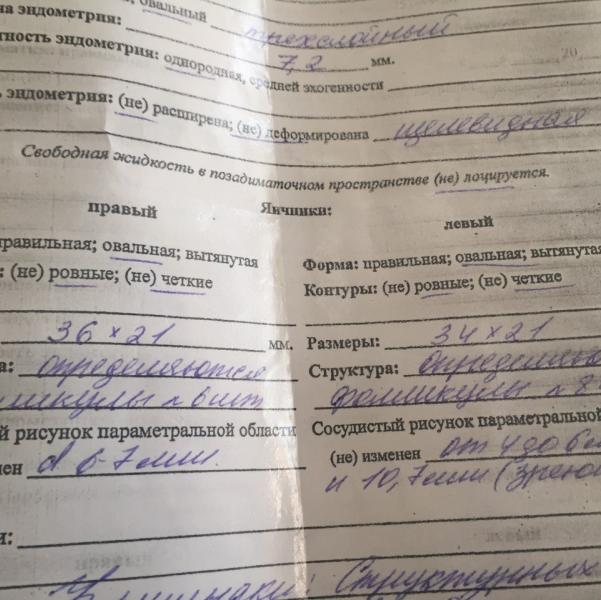 на эндометрия: овальный трехслойный
ность эндометрия: однородная, средней эхогенности 7,2 мм. 20
ь эндометрия: (не) расширена; (не) деформирована щелевидная
Свободная жидкость в позадиматочном пространстве (не) лоцируется.
Яичники:
правый левый
правильная; овальная; вытянутая Форма: правильная; овальная; вытянутая
: (не) ровные; (не) четкие Контуры: (не) ровные; (не) четкие
36 х 21 мм. Размеры: 34 х 21
а: определяются Структура: определяю
ликулы n 6 шт фолликулы n 8
й рисунок параметральной области Сосудистый рисунок параметральной
ен d 6-7 мм. (не) изменен от 4 до 6
и 10,7 мм
и:
Структурных